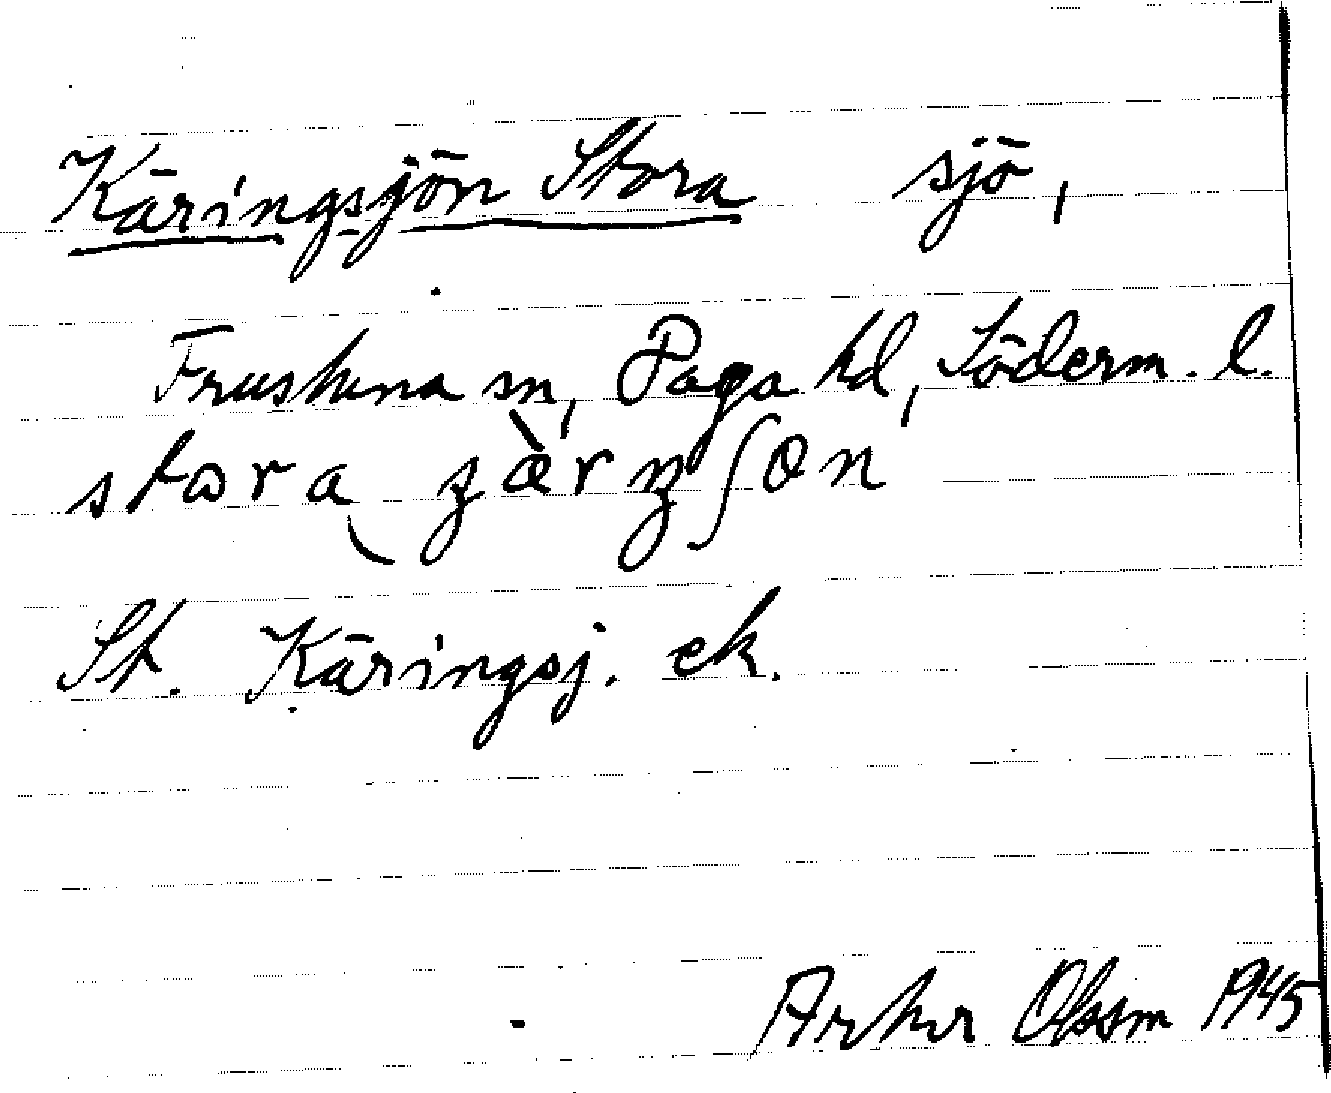 Käringsjön Stora sjö,
Frustuna sn, Daga hd, Söderm. l.
stora
St. Käringsj. ek.
Artur Olsson 1945